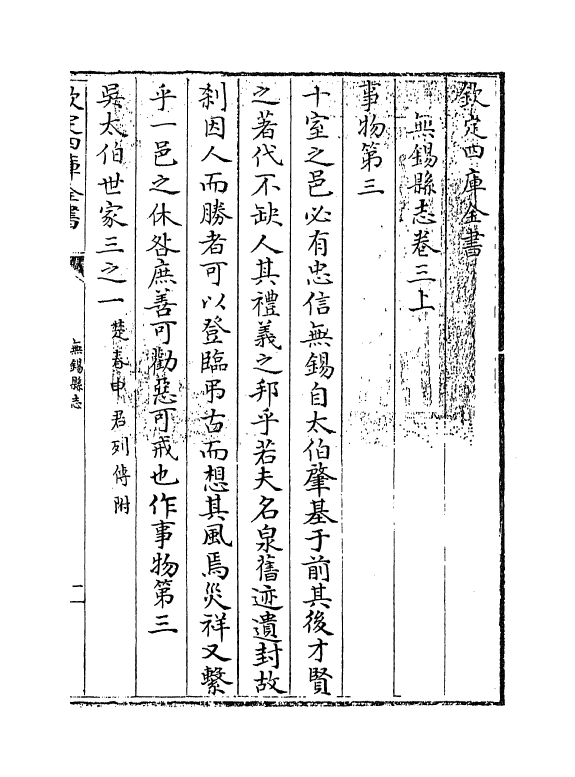 欽定四庫全書
無錫縣志卷三上
事物第三
十室之邑必有忠信無錫自太伯肇基于前其後才賢
之著代不缺人其禮義之邦乎若夫名泉舊迹遺封故
刹因人而勝者可以登臨弔古而想其風焉災祥又繫
乎一邑之休咎庶善可勸惡可戒也作事物第三
吳太伯世家三之一 楚春申君列傳附
欽定四庫全書 無錫縣志 二